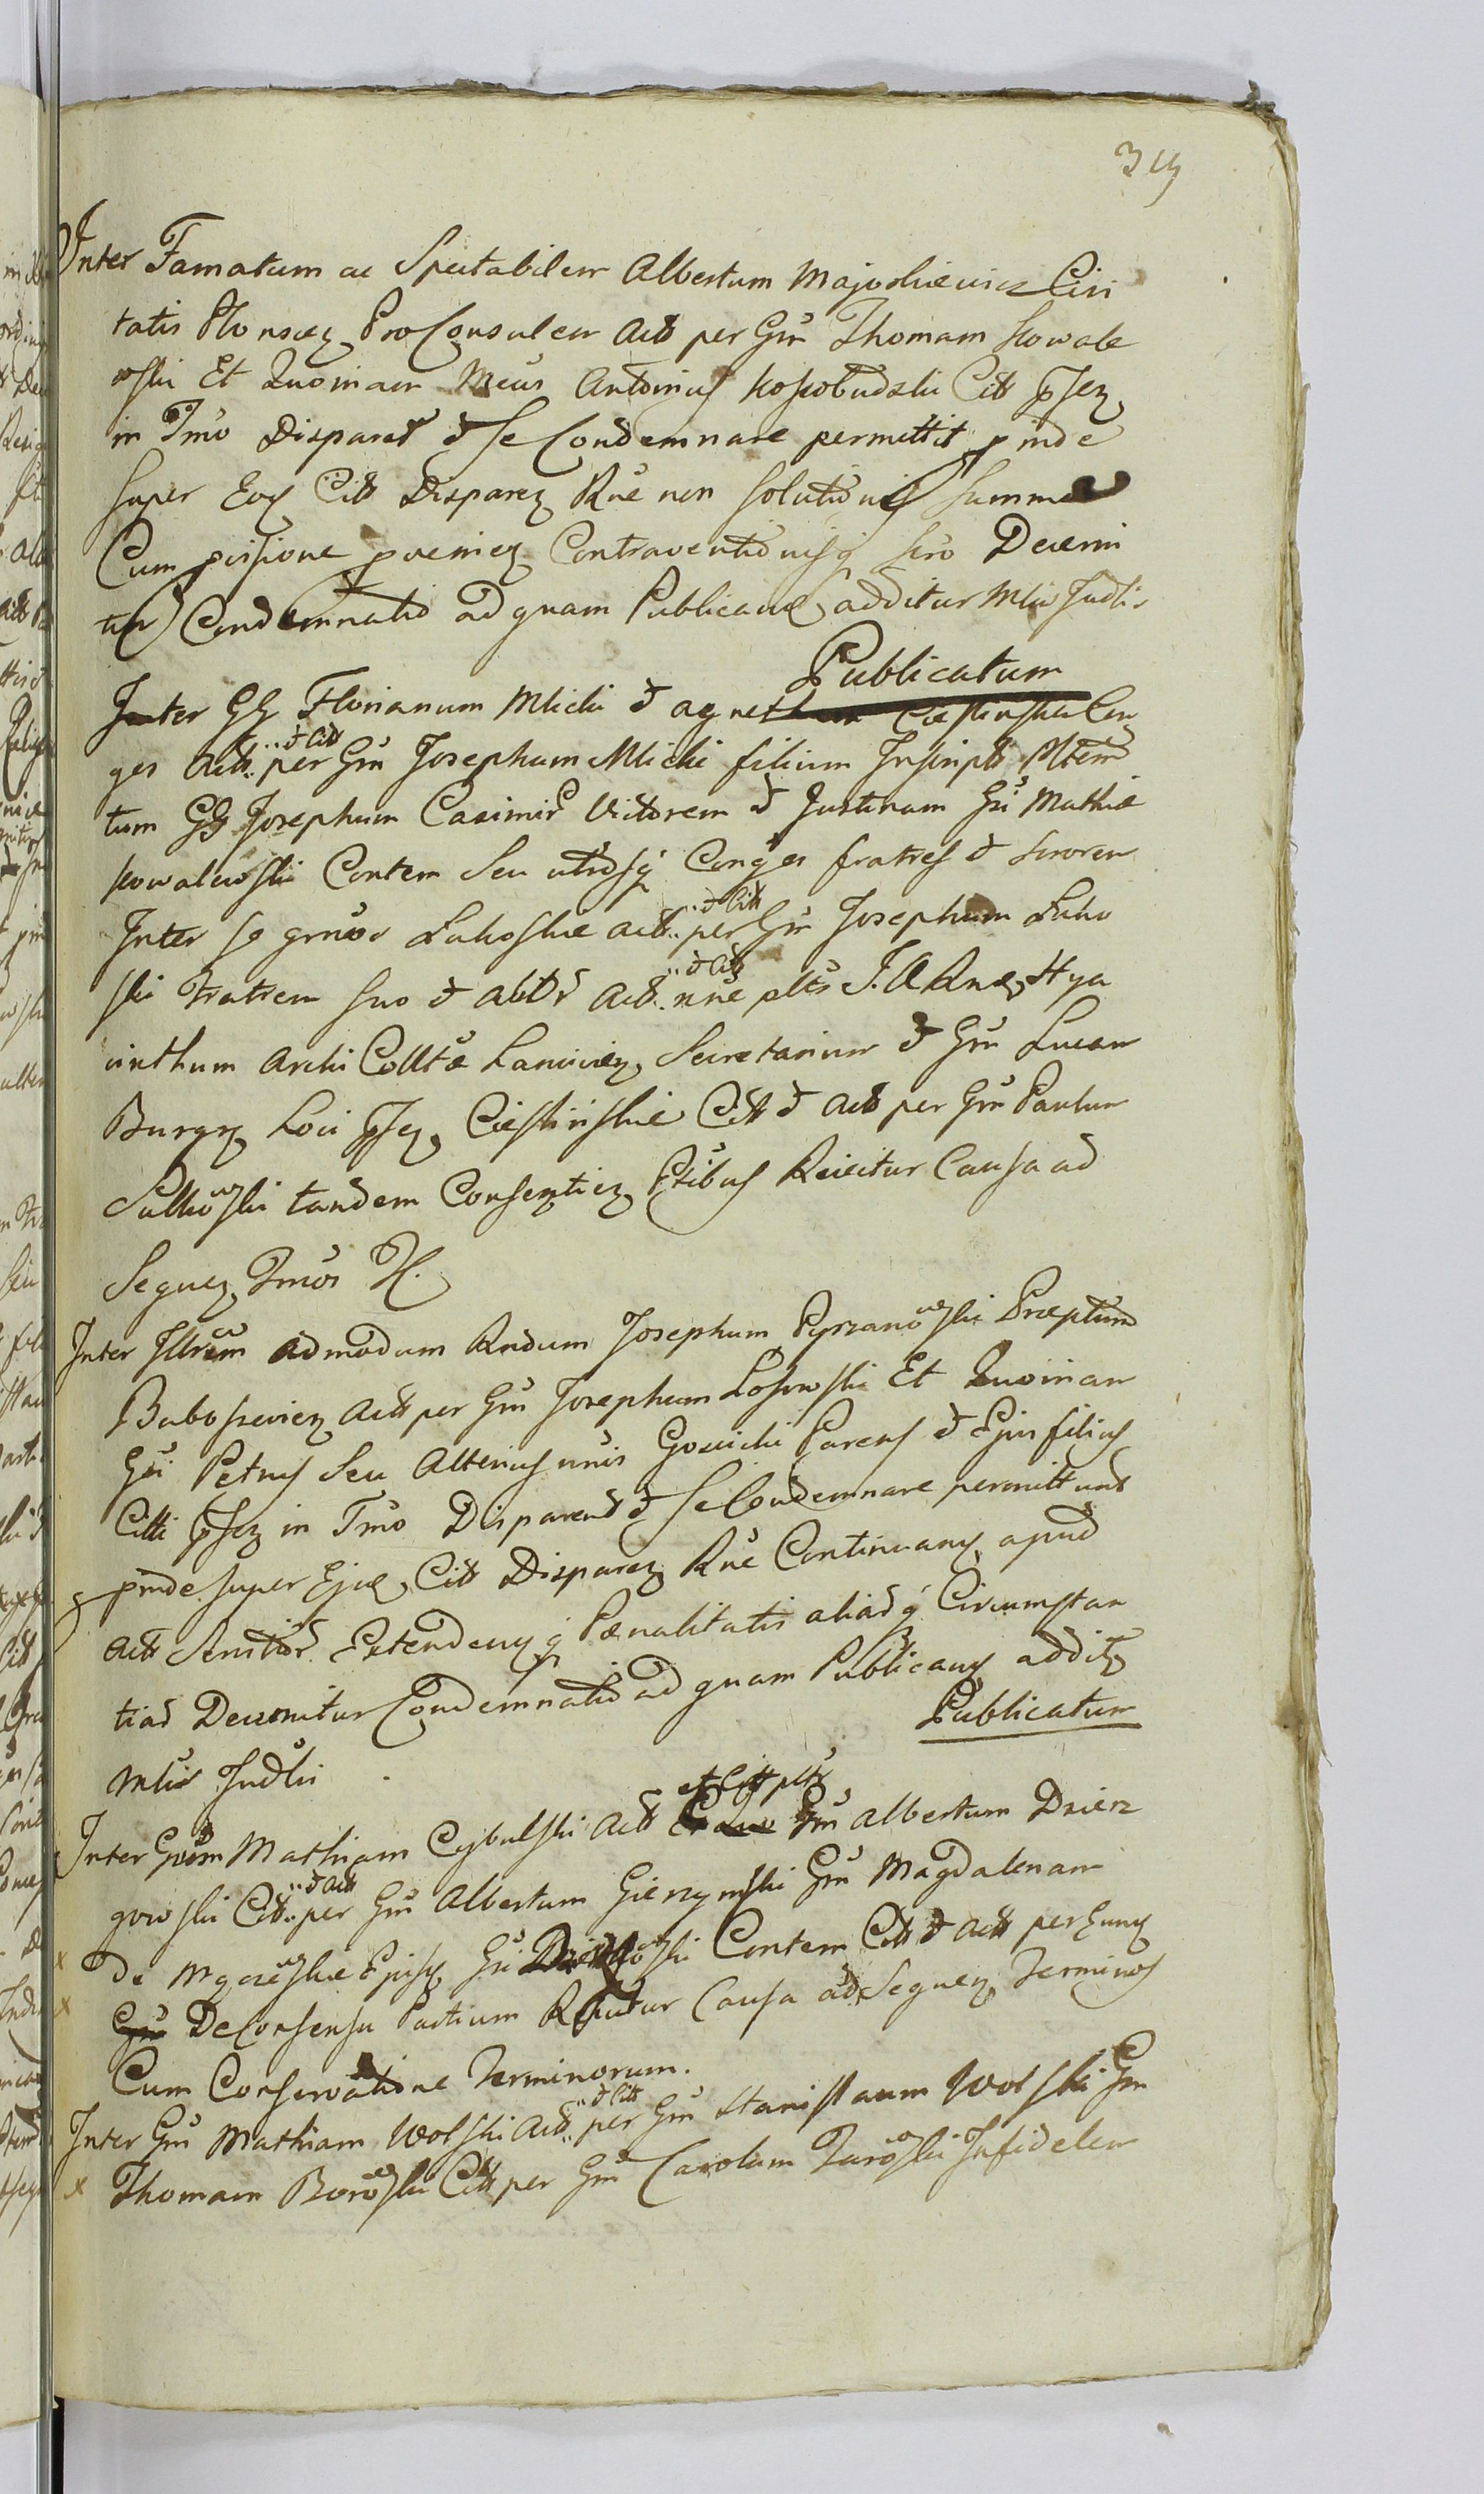 319
Inter Famatum ac Spectabilem Albertum Majoskiewicz Civi
tatis Plonscz ProConsulem Actt per Gm Thomam Kowale
wski Et Quoniam Meus Antonius Kossobudzki Citt pssz
in Tmo Disparet & se Condemnare permittit pinde
super Eoz Citt Disparez Rne non solutionis summae
Cum pvisione pveniez Contraventionisq suo Decerni
tur Condemnatio ad quam Publicanz additur Mlis Judlis
Publicatum
Inter GG Florianum Mlicki & Agnetham Ciestinska Con
ges Actt per Gm Josephum Mlicki filium Inscript
& Citt
tum GG Josephum Casimir Victorem & Justinam Gsi Mathiae
Kowalewski Contem Seu utrosq Conges fratres & sororem
Inter se gmos Lukoskie act per Gm Josephum Luko
& Citt
ski Fratrem suo & Actt nne pltr J. A Rndz Hya
& Citt
cinthum Archi Collta Lanciciez Secretarium & Gm Lucam
Burgz Loci pssz Ciestinskie Citt & Actt per Gm Paulum
Sulkowski tandem Consentiez Ptibus Reiicitur Causa ad
Sequez Tmos H.
Inter Illrem Admodum Rndum Josephum Pyrzanowski Praeptum
Baboszeviez Actt per Gm Josephum Losowski Et Quoniam
Gsi Petrus Seu Alterius nnis Goscicki Parens & Ejus filius
Citti pssz in Tmo Disparent & se Condemnare permittunt
pinde super Ejus Citt Disparez Rne Continuanz apud
Actt Servitor Extendenz q Paenalitatis aliasq Circumstan
tias Decernitur Condemnatio ad quam Publicanz addit
Publicatum
Mlis Judlii
et Citt pltr
Inter Gsum Mathiam Cybulski Actt Gm Albertum Dzierz
gowski Citt per Gm Albertum Gierzynski Gm Magdalenam
& Actt
De Mgozewskie Ejusz Gsi Contem Citt & Actt per Eunz
Gm De Consensu Partium Reiicitur Causa ad Sequez Terminos
Cum Conservatione Terminorum.
Inter Gm Mathiam Wolski Act per Gm Stanislaum Wolski Gm
& Citt
Thomam Borowski Citt per Gm Carolum Turowski Infidelem